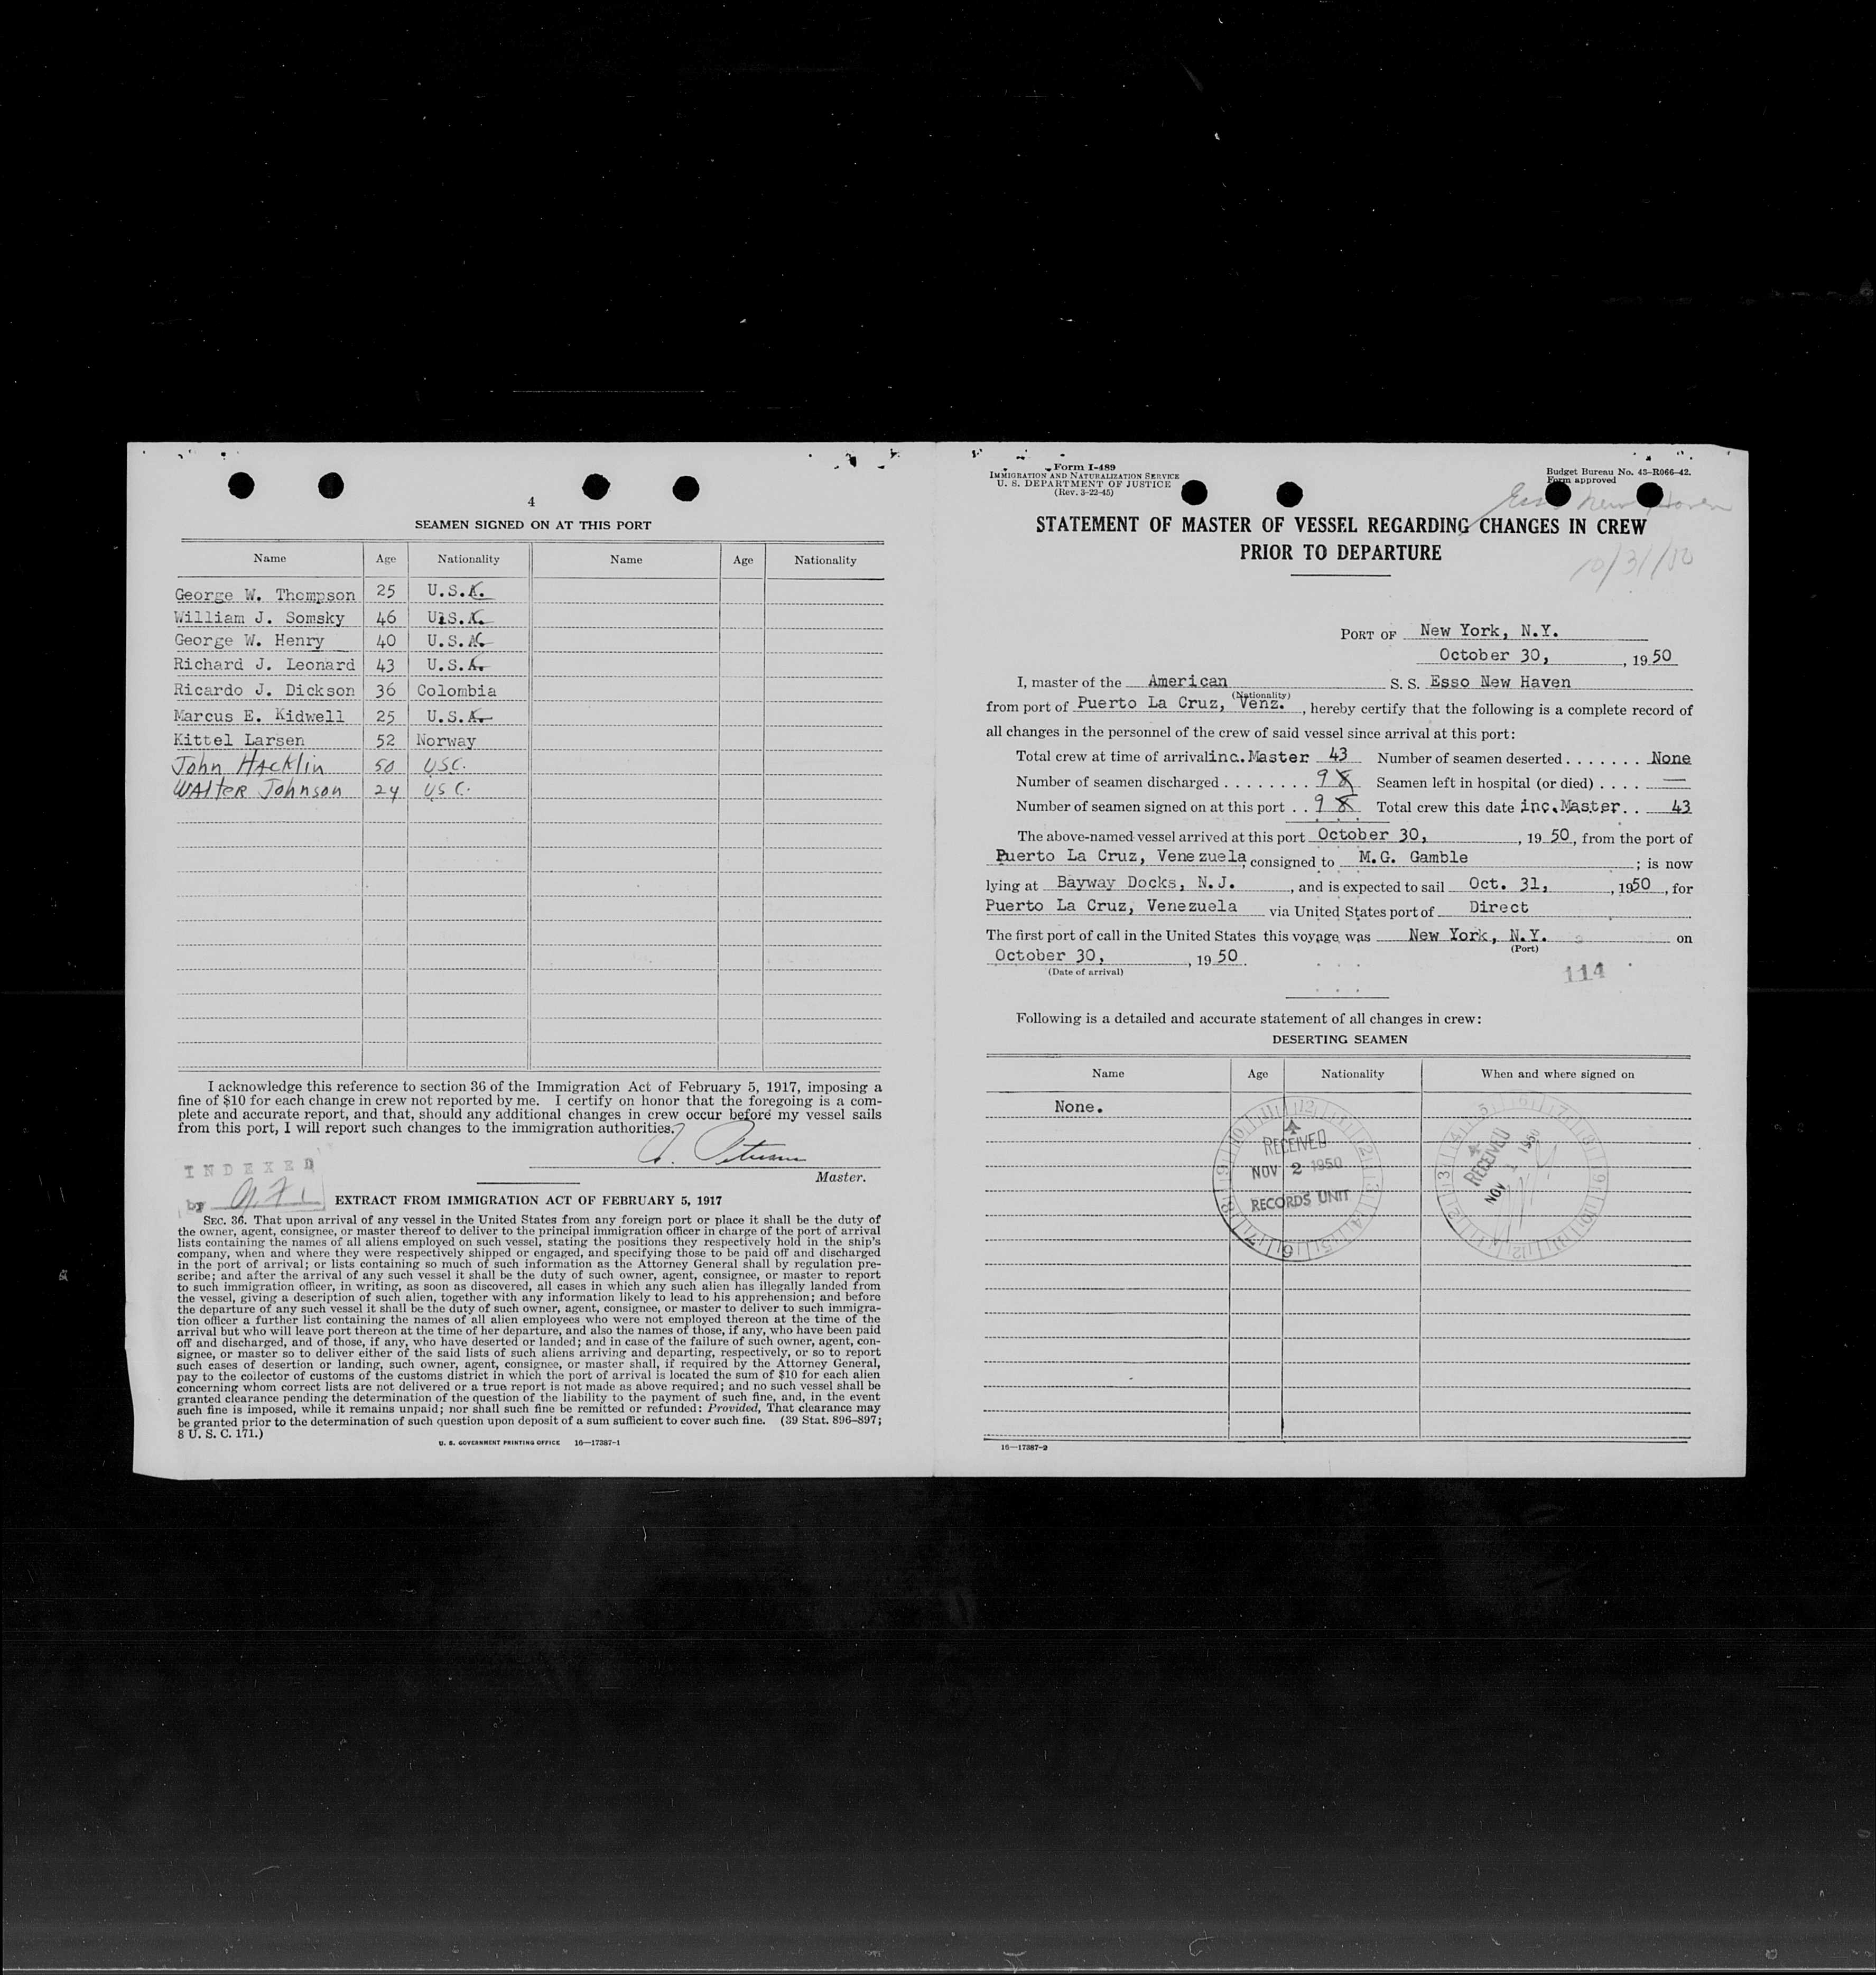 4
SEAMEN SIGNED ON AT THIS PORT
Name Age Nationality Name Age Nationality
George W. Thompson 25 U.S.
William J. Somsky 46 U.S.
George W. Henry 40 U.S.
Richard J. Leonard 43 U.S.
Ricardo J. Dickson 36 Colombia
Marcus E. Kidwell 25 U.S.
Kittel Larsen 52 Norway
John HAcklin 50 USC.
WAlteR Johnson 24 USC.
I acknowledge this reference to section 36 of the Immigration Act of February 5, 1917, imposing a
fine of $10 for each change in crew not reported by me. I certify on honor that the foregoing is a com-
plete and accurate report, and that, should any additional changes in crew occur before my vessel sails
from this port, I will report such changes to the immigration authorities.
Master.
INDEXED
by
EXTRACT FROM IMMIGRATION ACT OF FEBRUARY 5, 1917
SEC. 36. That upon arrival of any vessel in the United States from any foreign port or place it shall be the duty of
the owner, agent, consignee, or master thereof to deliver to the principal immigration officer in charge of the port of arrival
lists containing the names of all aliens employed on such vessel, stating the positions they respectively hold in the ship's
company, when and where they were respectively shipped or engaged, and specifying those to be paid off and discharged
in the port of arrival; or lists containing so much of such information as the Attorney General shall by regulation pre-
scribe; and after the arrival of any such vessel it shall be the duty of such owner, agent, consignee, or master to report
to such immigration officer, in writing, as soon as discovered, all cases in which any such alien has illegally landed from
the vessel, giving a description of such alien, together with any information likely to lead to his apprehension; and before
the departure of any such vessel it shall be the duty of such owner, agent, consignee, or master to deliver to such immigra-
tion officer a further list containing the names of all alien employees who were not employed thereon at the time of the
arrival but who will leave port thereon at the time of her departure, and also the names of those, if any, who have been paid
off and discharged, and of those, if any, who have deserted or landed; and in case of the failure of such owner, agent, con-
signee, or master so to deliver either of the said lists of such aliens arriving and departing, respectively, or so to report
such cases of desertion or landing, such owner, agent, consignee, or master shall, if required by the Attorney General,
pay to the collector of customs of the customs district in which the port of arrival is located the sum of $10 for each alien
concerning whom correct lists are not delivered or a true report is not made as above required; and no such vessel shall be
granted clearance pending the determination of the question of the liability to the payment of such fine, and, in the event
such fine is imposed, while it remains unpaid; nor shall such fine be remitted or refunded: Provided, That clearance may
be granted prior to the determination of such question upon deposit of a sum sufficient to cover such fine. (39 Stat. 896–897;
8 U. S. C. 171.)
U. S. GOVERNMENT PRINTING OFFICE 16—17387-1
Form I-489
IMMIGRATION AND NATURALIZATION SERVICE
U. S. DEPARTMENT OF JUSTICE
(Rev. 3-22-45)
Budget Bureau No. 43-R066-42.
Form approved
Esso New Haven
STATEMENT OF MASTER OF VESSEL REGARDING CHANGES IN CREW
PRIOR TO DEPARTURE
10/31/50
PORT OF New York, N.Y.
October 30, , 19 50
I, master of the American S. S. Esso New Haven
(Nationality)
from port of Puerto La Cruz, Venz. , hereby certify that the following is a complete record of
all changes in the personnel of the crew of said vessel since arrival at this port:
Total crew at time of arrival inc. Master 43 Number of seamen deserted . . . . . . . None
Number of seamen discharged . . . . . . . . 9 8 Seamen left in hospital (or died) . . . . —
Number of seamen signed on at this port . . 9 8 Total crew this date inc. Master. . 43
The above-named vessel arrived at this port October 30, , 19 50, from the port of
Puerto La Cruz, Venezuela, consigned to M.G. Gamble ; is now
lying at Bayway Docks, N.J. , and is expected to sail Oct. 31, , 1950 , for
Puerto La Cruz, Venezuela via United States port of Direct
The first port of call in the United States this voyage was New York, N.Y. on
(Port)
October 30, , 19 50.
(Date of arrival)
114
Following is a detailed and accurate statement of all changes in crew:
DESERTING SEAMEN
Name Age Nationality When and where signed on
None.
RECEIVED
NOV 2 1950
RECORDS UNIT
RECEIVED
NOV 1 1950
16—17387-2